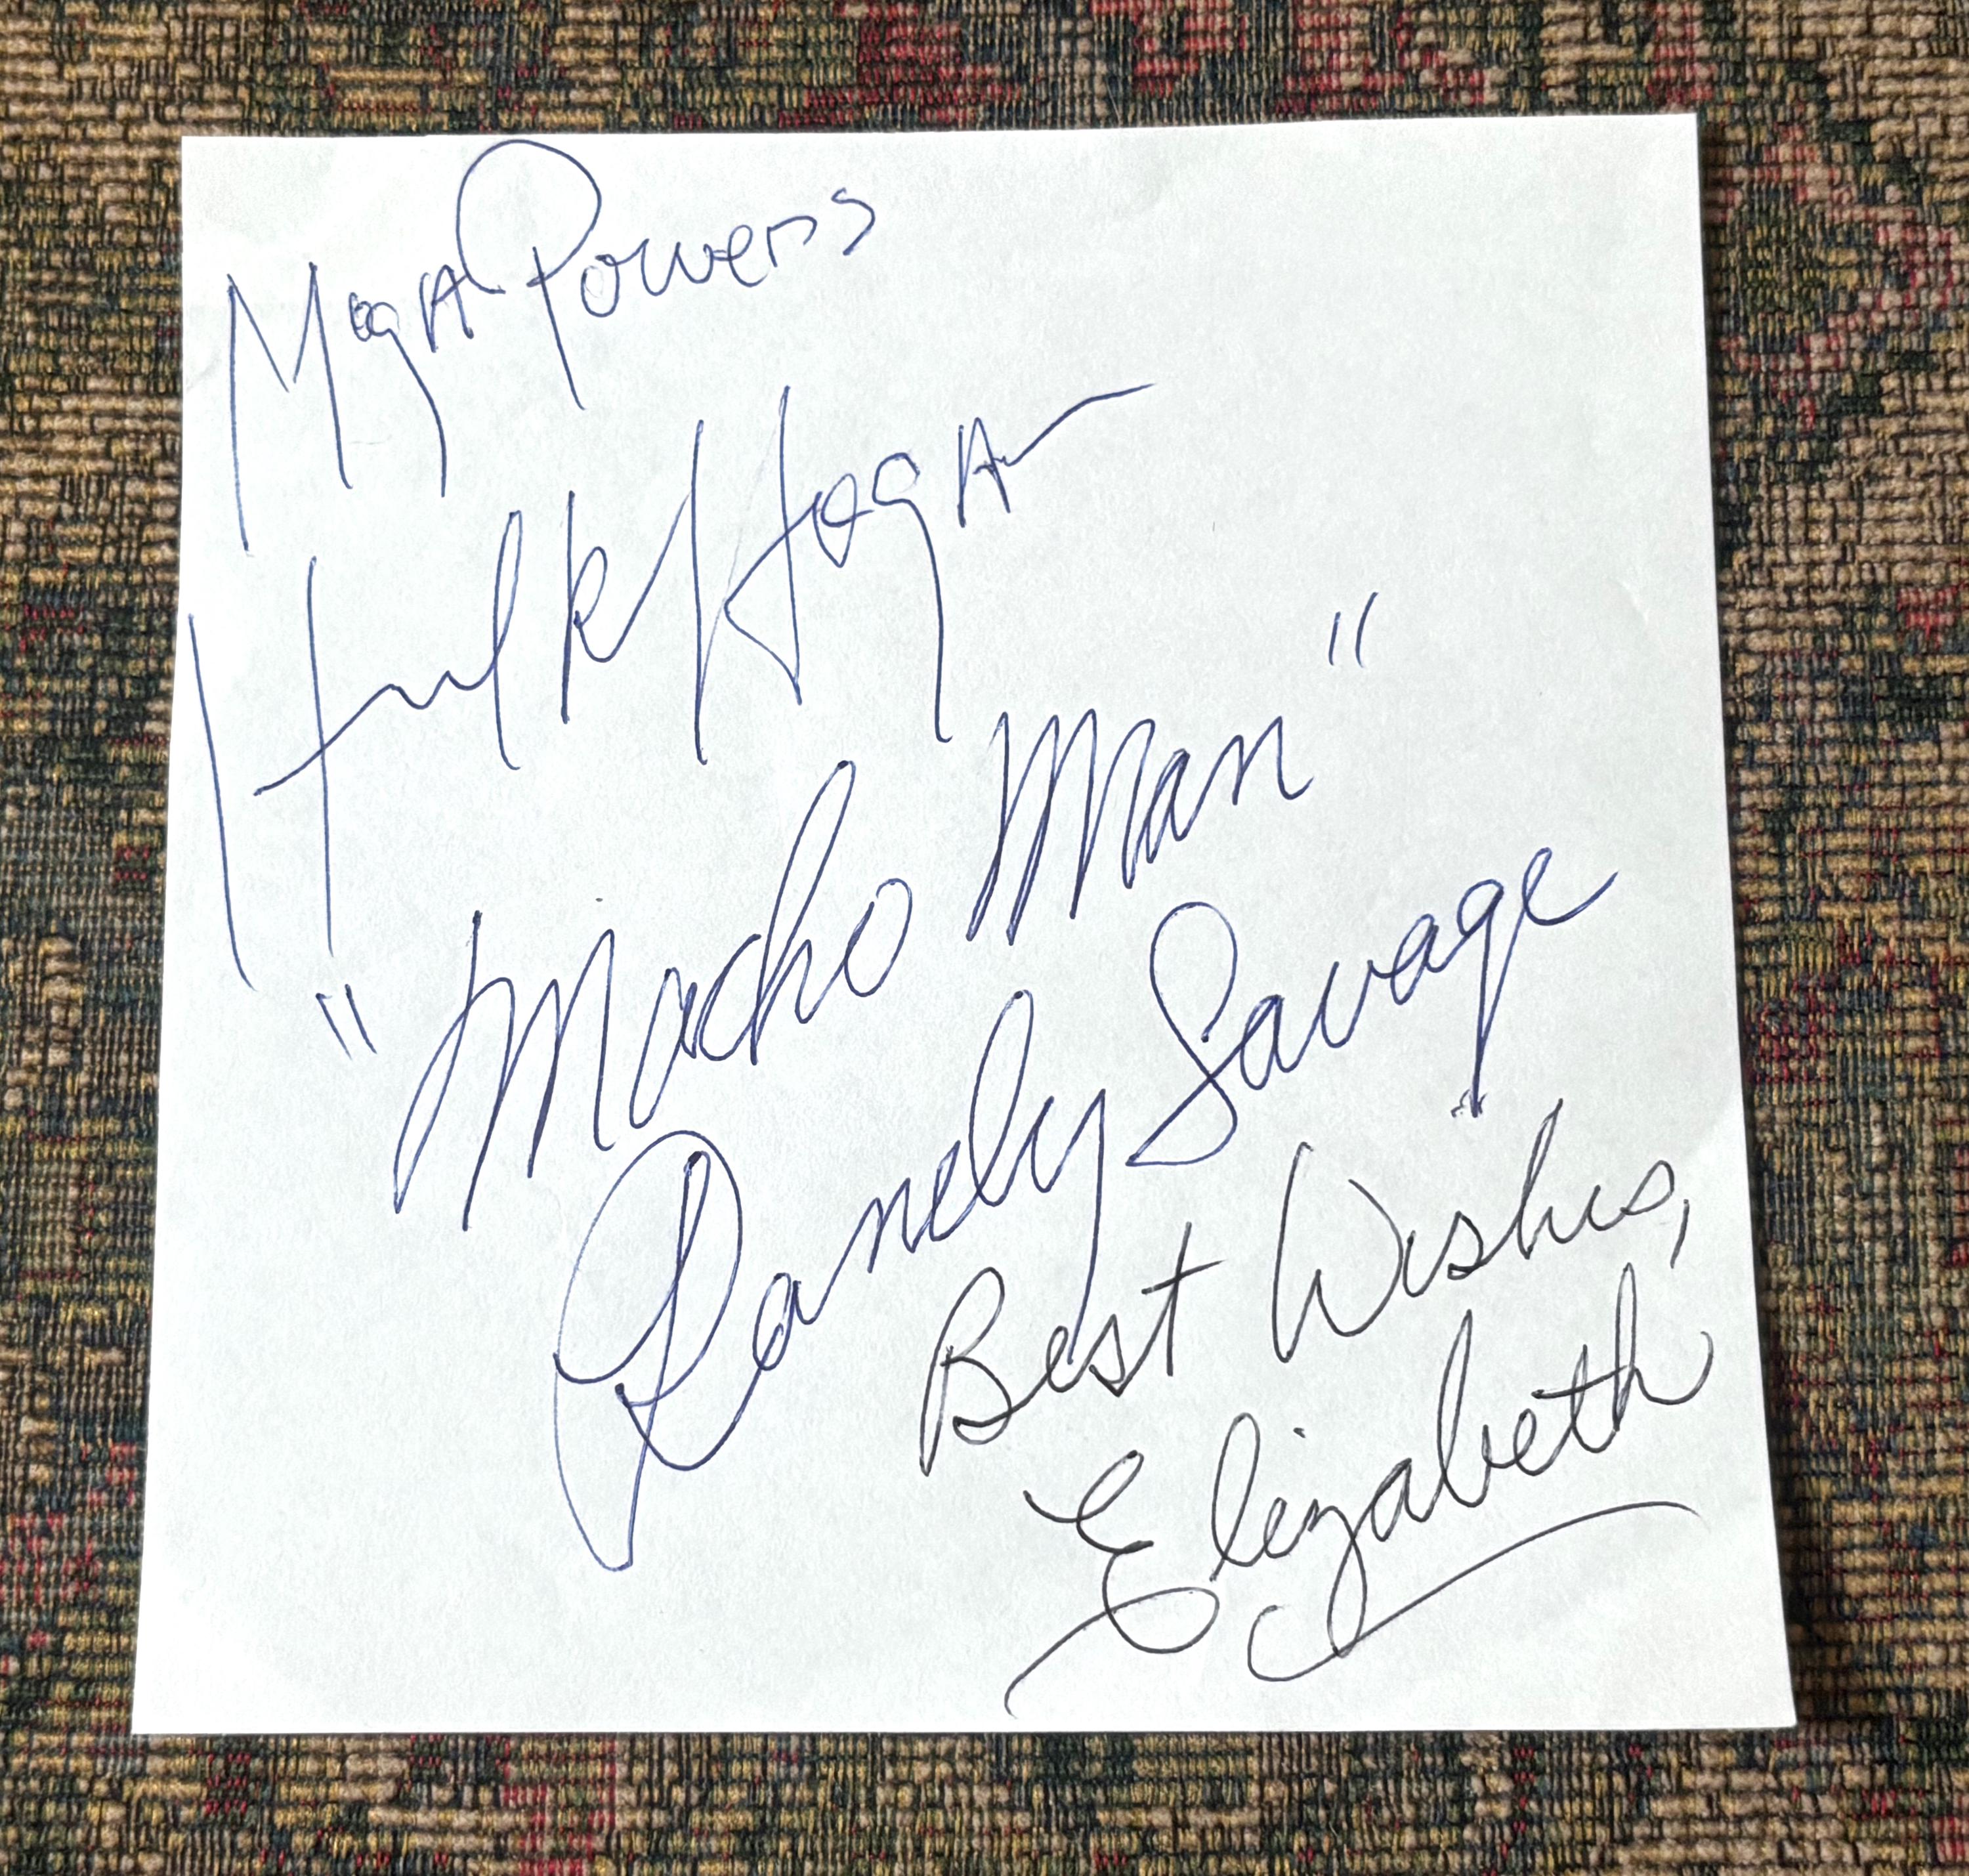 MegA Powers
Hulk Hogan
"Macho Man"
Randy Savage
Best Wishes,
Elizabeth